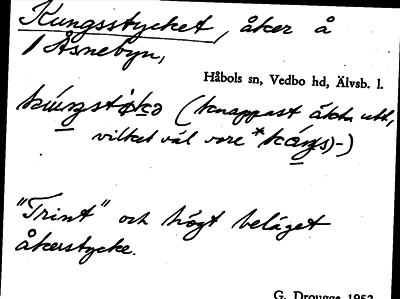 Kungsstycket, åker å
/ Åsnebyn,
Håbols sn, Vedbo hd, Älvsb. l.
(knappast äkta utt.,
vilket väl vore
"Trint" och högt beläget
åkerstycke.
G. Drougge 1952